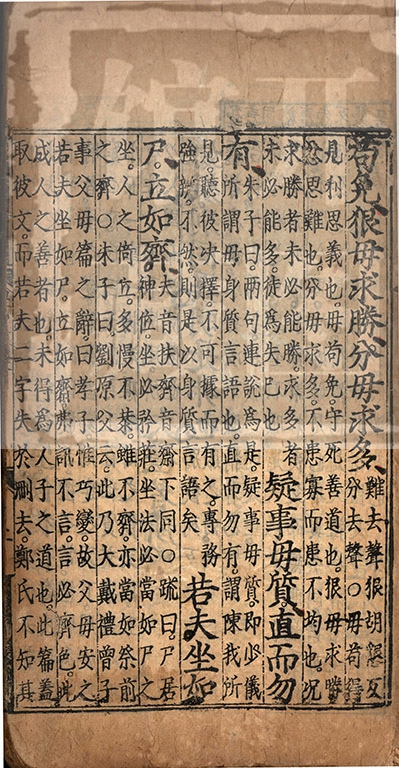 苟免狠毋求勝分毋求多難去聲狠胡懇反
分去聲○毋苟得
見利思義也毋苟免守死善道也狠毋求勝
忿思難也分毋求多不患寡而患不均也況
求勝者未必能勝求多者
未必能多徒為失己也疑事毋質直而勿
有朱子曰兩句連說為是疑事毋質即少儀
所謂毋身質言語也直而勿有謂陳我所
見聽彼決擇不可據而有之專務
強辯不然則是以身質言語矣若夫坐如
尸立如齊夫音扶齊音齋下同○疏曰尸居
神位坐必矜莊坐法必當如尸之
坐人之倚立多慢不恭雖不齊亦當如祭前
之齊○朱子曰劉原父云此乃大戴禮曾子
事父母篇之辭曰孝子惟巧變故父母安之
若夫坐如尸立如齊弗訊不言言必齊色此
成人之善者也未得為人子之道也此篇蓋
取彼文而若夫二字失於刪去鄭氏不知其